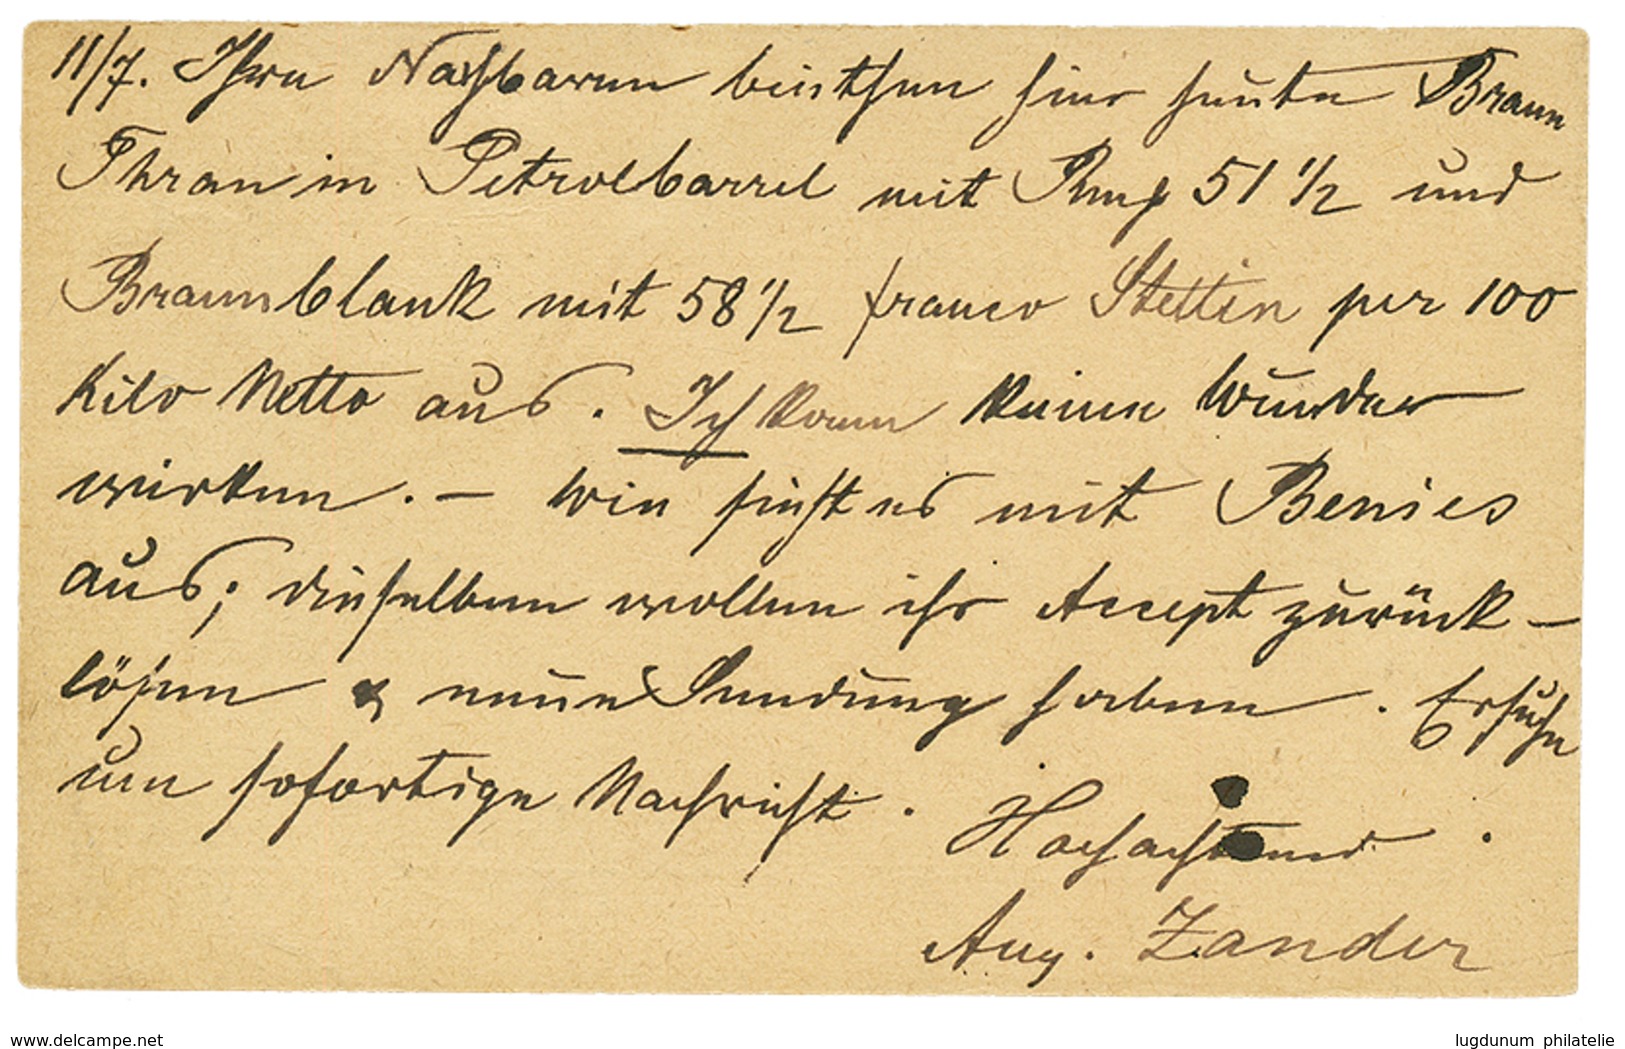 11/7. Ihre Nachbaren bieten hier heute Braun
Thran in Petrolbarrel mit Rmg 51 1/2 und
Braunblank mit 58 1/2 franco Stettin per 100
Kilo Netto aus. Ich kann keine Wunder
wirken. – Wie sieht es mit Benies
aus; dieselben wollen ihr Accept zurück –
lösen & neue Sendung haben. Ersuche
um sofortige Nachricht.
Hochachtend
Aug. Zander
www.delcampe.net
lugdunum philatelie